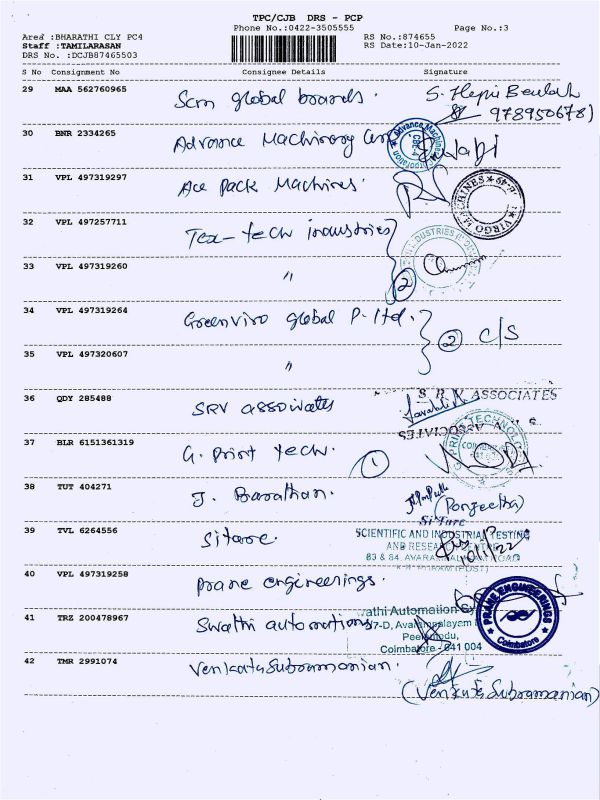 TPC/CJB DRS - PCP
Phone No.:0422-3505555 Page No.:3
Area :BHARATHI CLY PC4 RS No.:874655
Staff :TAMILARASAN RS Date:10-Jan-2022
DRS No. :DCJB87465503
S No Consignment No Consignee Details Signature
29 MAA 562760965 Scm global brands. S. Hepsi Beulah
9789506781
30 BNR 2334265 Advance Machinery Corp
31 VPL 497319297 Ace Pack Machines. VIRGO MACHINES
32 VPL 497257711 Tex-tech industries
33 VPL 497319260 " 2
34 VPL 497319264 Greenviro global P. ltd. 2 C/S
35 VPL 497320607 "
36 QDY 285488 SRV associates S. R. K ASSOCIATES
37 BLR 6151361319 G. Print tech. 1
38 TUT 404271 J. Barathan. (Ponjeetha)
39 TVL 6264556 Sitarc. SiTarc
SCIENTIFIC AND INDUSTRIAL TESTING
AND RESEARCH
83 & 84, AVARAMPALAYAM ROAD
40 VPL 497319258 prane engineerings. PRANE ENGINEERINGS
Coimbatore
41 TRZ 200478967 Swathi automations
Swathi Automation
7-D, Avarampalayam
Peelamedu,
Coimbatore - 641 004
42 TMR 2991074 Venkatasubramanian.
(Venkatasubramanian)